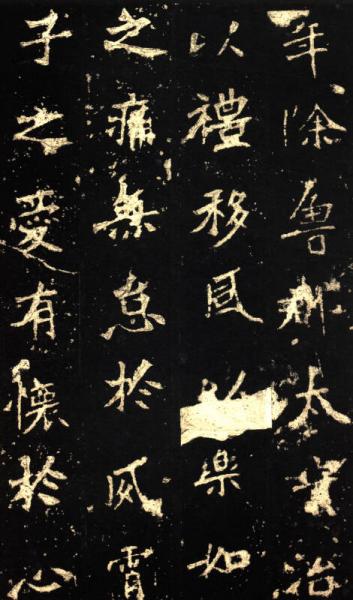 年除魯郡太守治
以禮移風以樂如
之痛無怠於夙宵
子之愛有懷於心